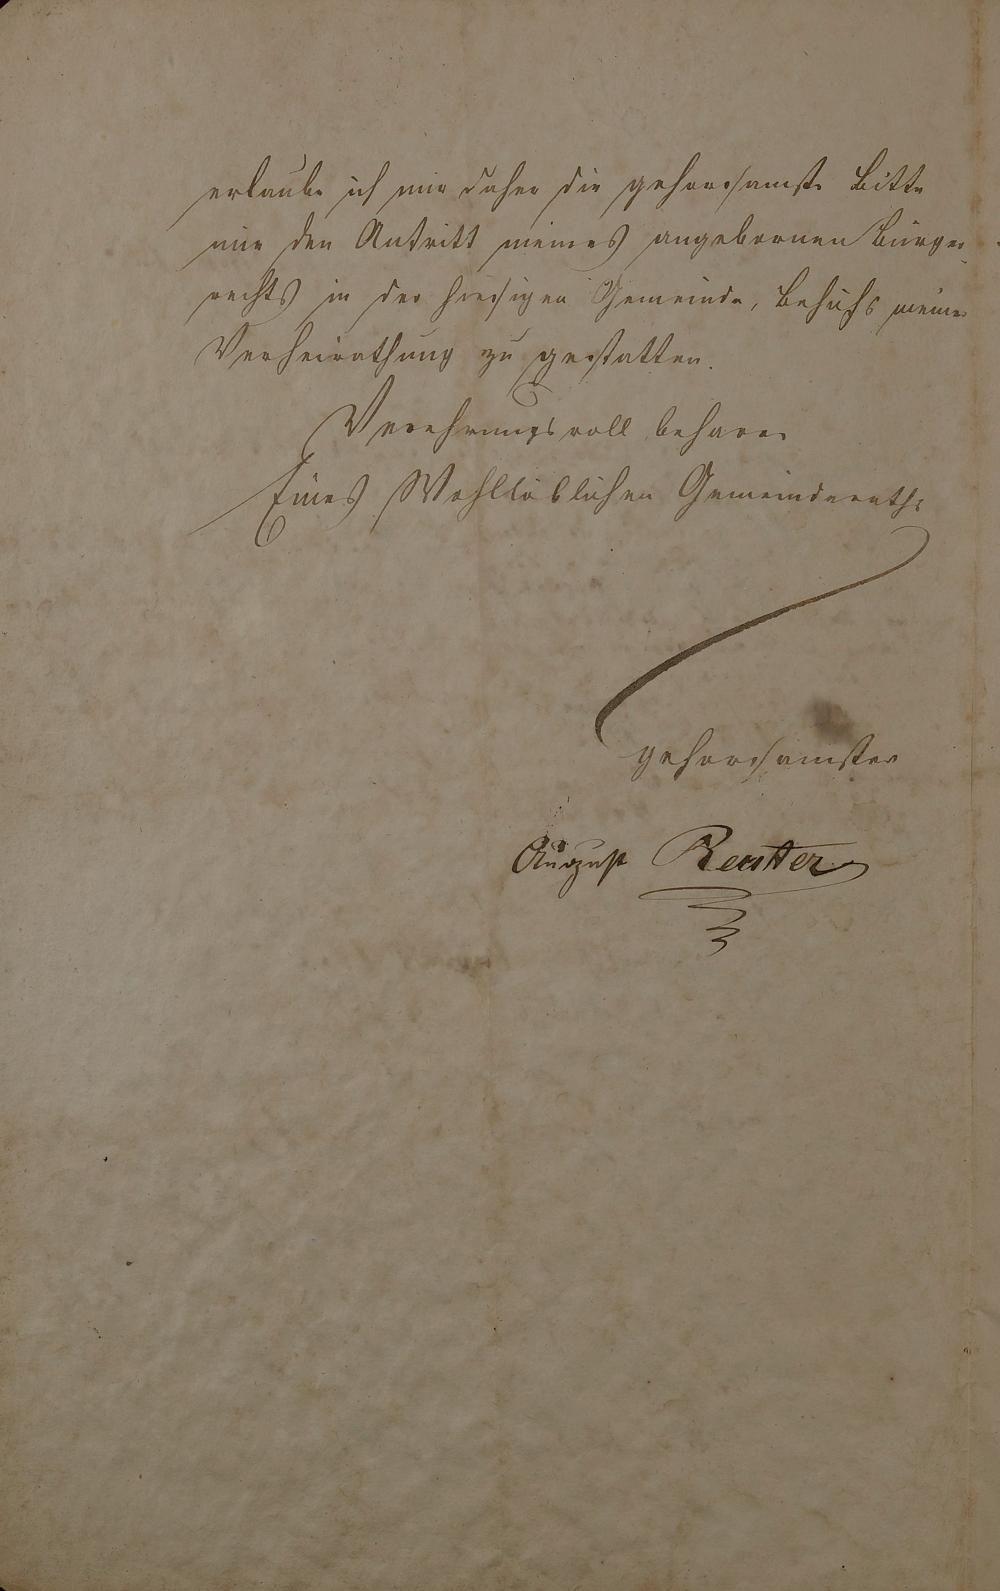 erlaube ich mir daher die gehorsamste Bitte
mir den Antritt meines angebornen Bürger-
rechts in der hiesigen Gemeinde, behufs meiner
Verheirathung zu gestatten.
Verehrungsvoll beharre
Eines Wohllöblichen Gemeinderaths
gehorsamster
August Reutter